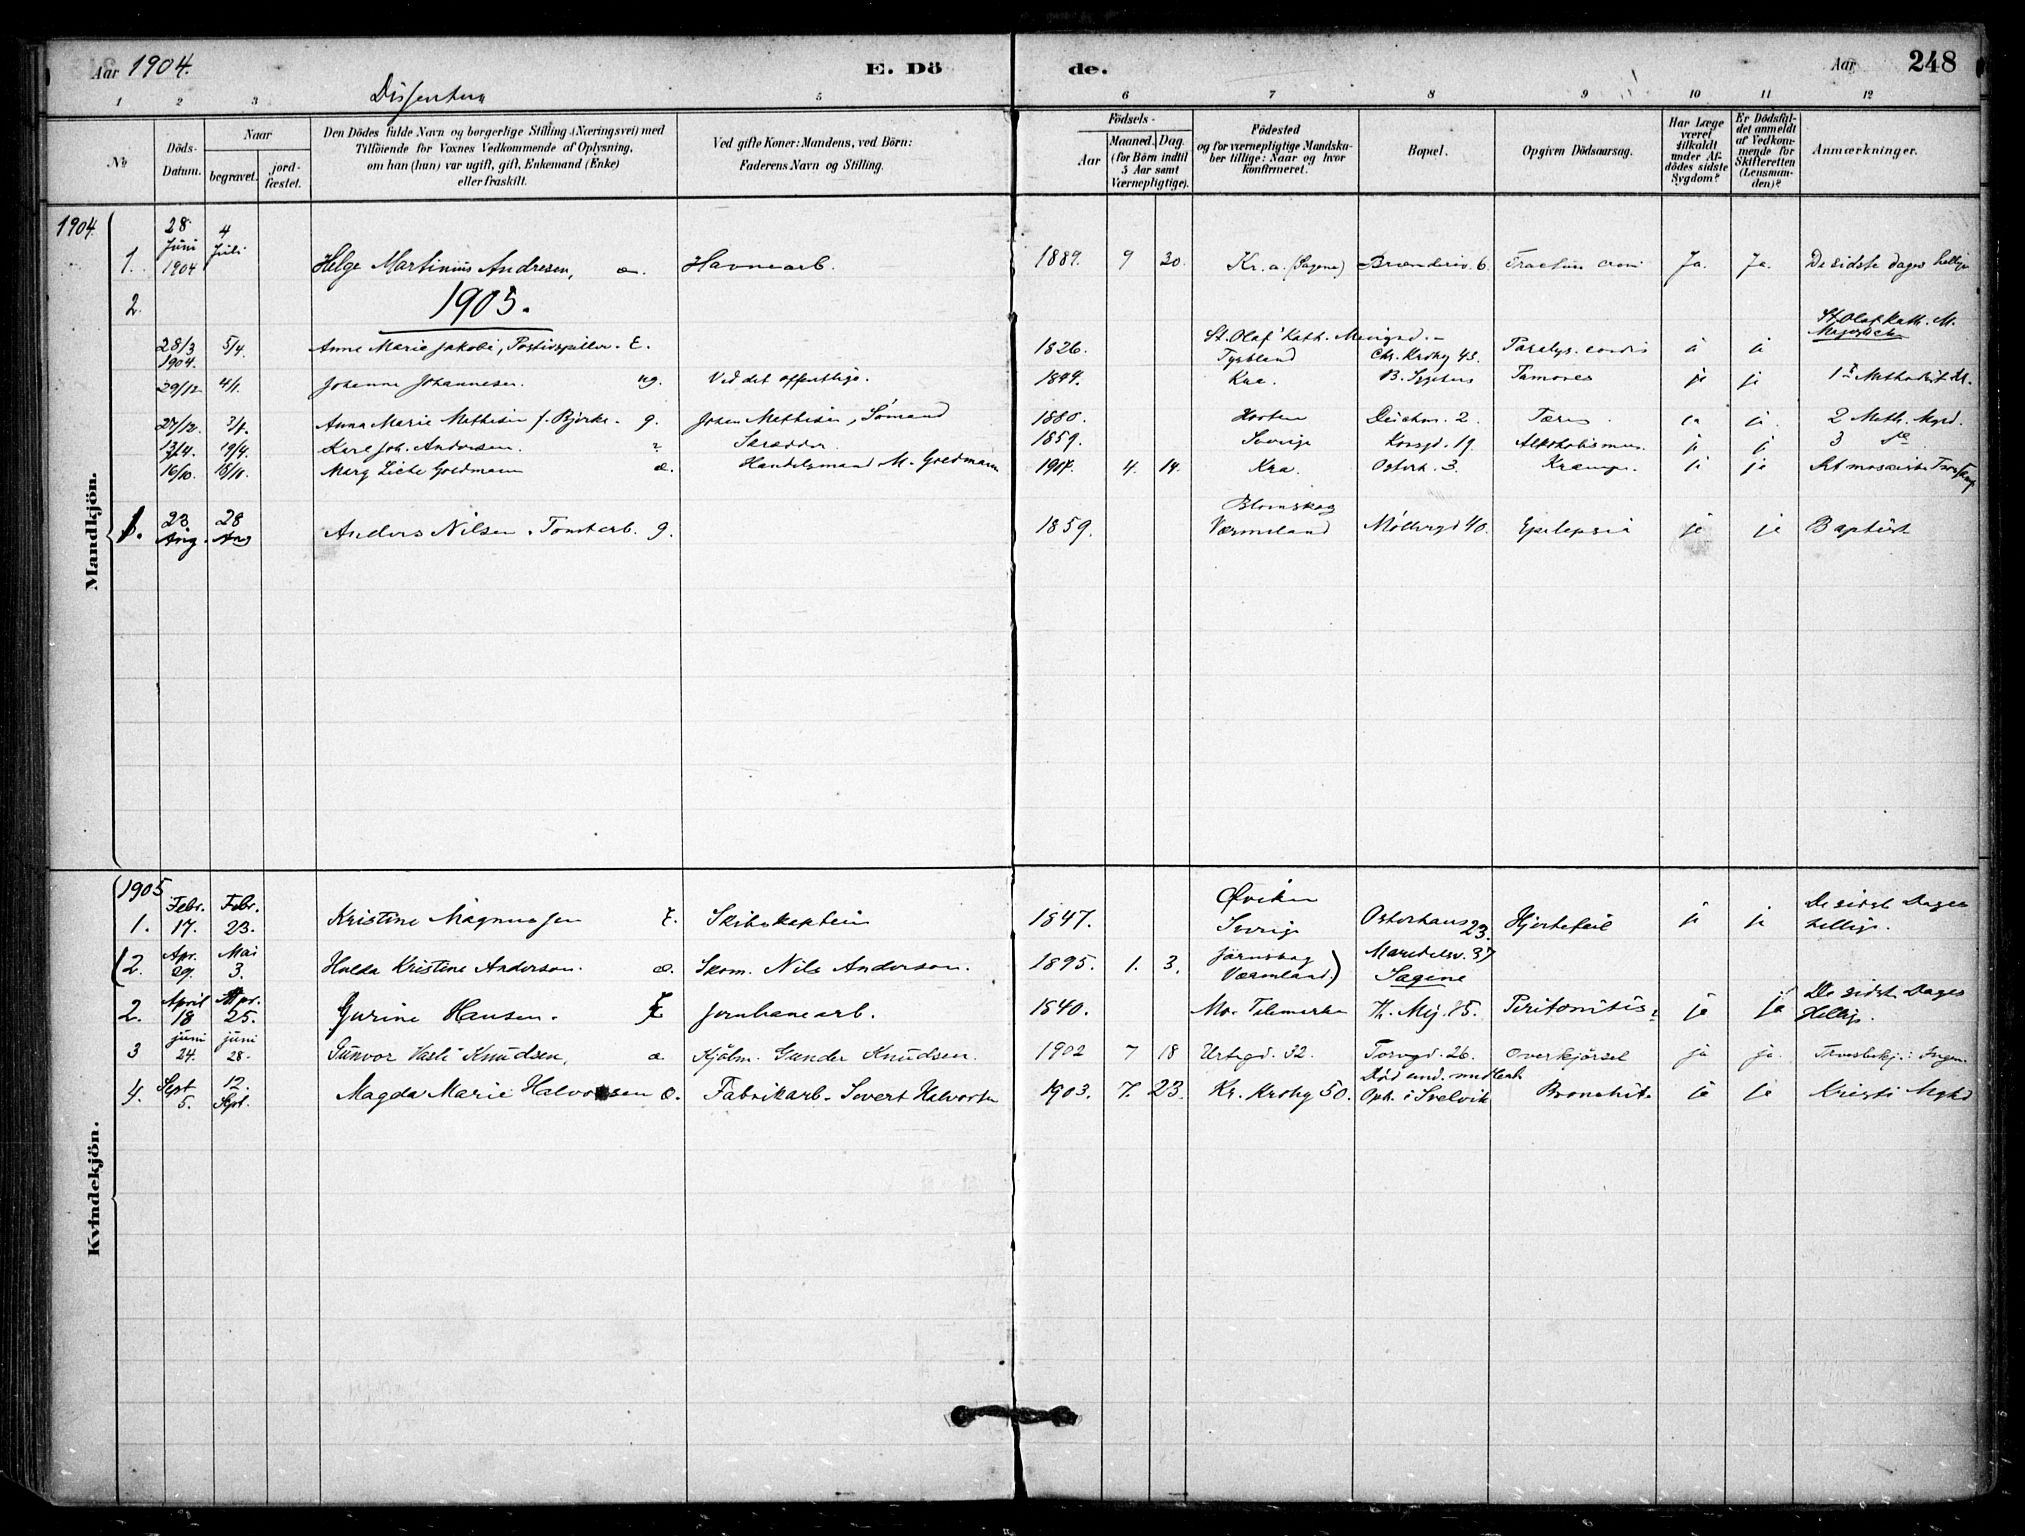 Aar 1904.
E. Dö
de.
Aar
248
1 2 3 Dissentere 5 6 7 8 9 10 11 12
No
Döds-Datum.
Naar
begravet.
jord-fæstet.
Den Dödes fulde Navn og borgerlige Stilling (Næringsvei) med
Tilföiende for Voxnes Vedkommende af Oplysning,
om han (hun) var ugift, gift, Enkemand (Enke)
eller fraskilt.
Ved gifte Koner: Mandens, ved Börn:
Faderens Navn og Stilling.
Födsels-
Aar
Maaned. Dag.
(for Börn indtil
5 Aar samt
Værnepligtige).
Födested
og for værnepligtige Mandska-
ber tillige: Naar og hvor
konfirmeret.
Bopæl.
Opgiven Dödsaarsag.
Har Læge
været
tilkaldt
under Af-
dödes sidste
Sygdom?
Er Dödsfal-
det anmeldt
af Vedkom-
mende for
Skifteretten
(Lensman-
den)?
Anmærkninger.
Mandkjön.
1904
1. 28 Juni 1904 4 Juli Helge Martinius Andresen, æ. Havnearb. 1889. 9 30. Kr.a. (Sagene) Brænderiv. 6. Fractura Ja. Ja. De sidste dages hellige
2. 1905.
28/3 5/4. Anne Marie Jakobi, Positivspiller. E. 1826. St. Olaf Kath. Menigd. Tyskland Chr. Krohg 43. Paralys. cordis ja ja St. Olaf Kath. M.
1904. 29/12 4/1. Johanne Johannesen ug. Ved det offentlige. 1844. Kra. B. Sygehus Tumores ja ja 1 Methodist
27/12. 3/1. Anna Marie Mathisen f. Bjerke. g. Johan Mathisen, Sömand 1880. Horten Deichm. 2. Tæring ja ja 2 Meth. Mgd.
13/4. 19/4. Karl Joh. Andersen. ? Skrædder 1859. Sverige Korsgd. 19. Alkoholismus. ja ja 3
16/10. 18/10. Goldmann æ. Handelsmand M. Goldmann 1904. 4. 14. Kra. Osterh. 3. Krampe. ja ja Det mosaiske Trossamf.
1. 23 Aug. 28 Aug Anders Nilsen. Tomtearb. g. 1859. Blomskog Værmland Möllergd 40. Epilepsia ja je Baptist
Kvindekjön.
1905
1. Febr. 17. Febr. 23. Kristine Magnussen E. Skibskaptein 1847. Øviken Sverige Osterhaus 23. Hjertefeil ja ja De sidst. Dages hellige.
(2. Apr. 29. Mai 3. Hulda Kristine Anderson. æ. Skom. Nils Anderson. 1895. 1. 3. Järnskog Værmland.) Maridalsv. 37 Sagene
2. April 18 Apr. 25. Gurine Hansen. E Jernbanearb. 1840. Mo. Telemarken Th. Mej. 85. Peritonitis. ja ja De sidst. Dages Hellige.
3 juni 24. juni 28. Gunvor Vasli Knudsen, æ. Kjölm. Gunder Knudsen. 1902 7 18 Urtegd. 32. Torvgd. 26. Overkjörsel ja ja. Troesbekj.: Ingen
4. Sept 5. 12. Sept. Magda Marie Halvorsen æ. Fabrikarb. Severt Halvorsen 1903. 7. 23. Kr. Krohg 50. Död und. midlert. Oph. i Svelvik Bronchit. ja ja Kristi Mghd